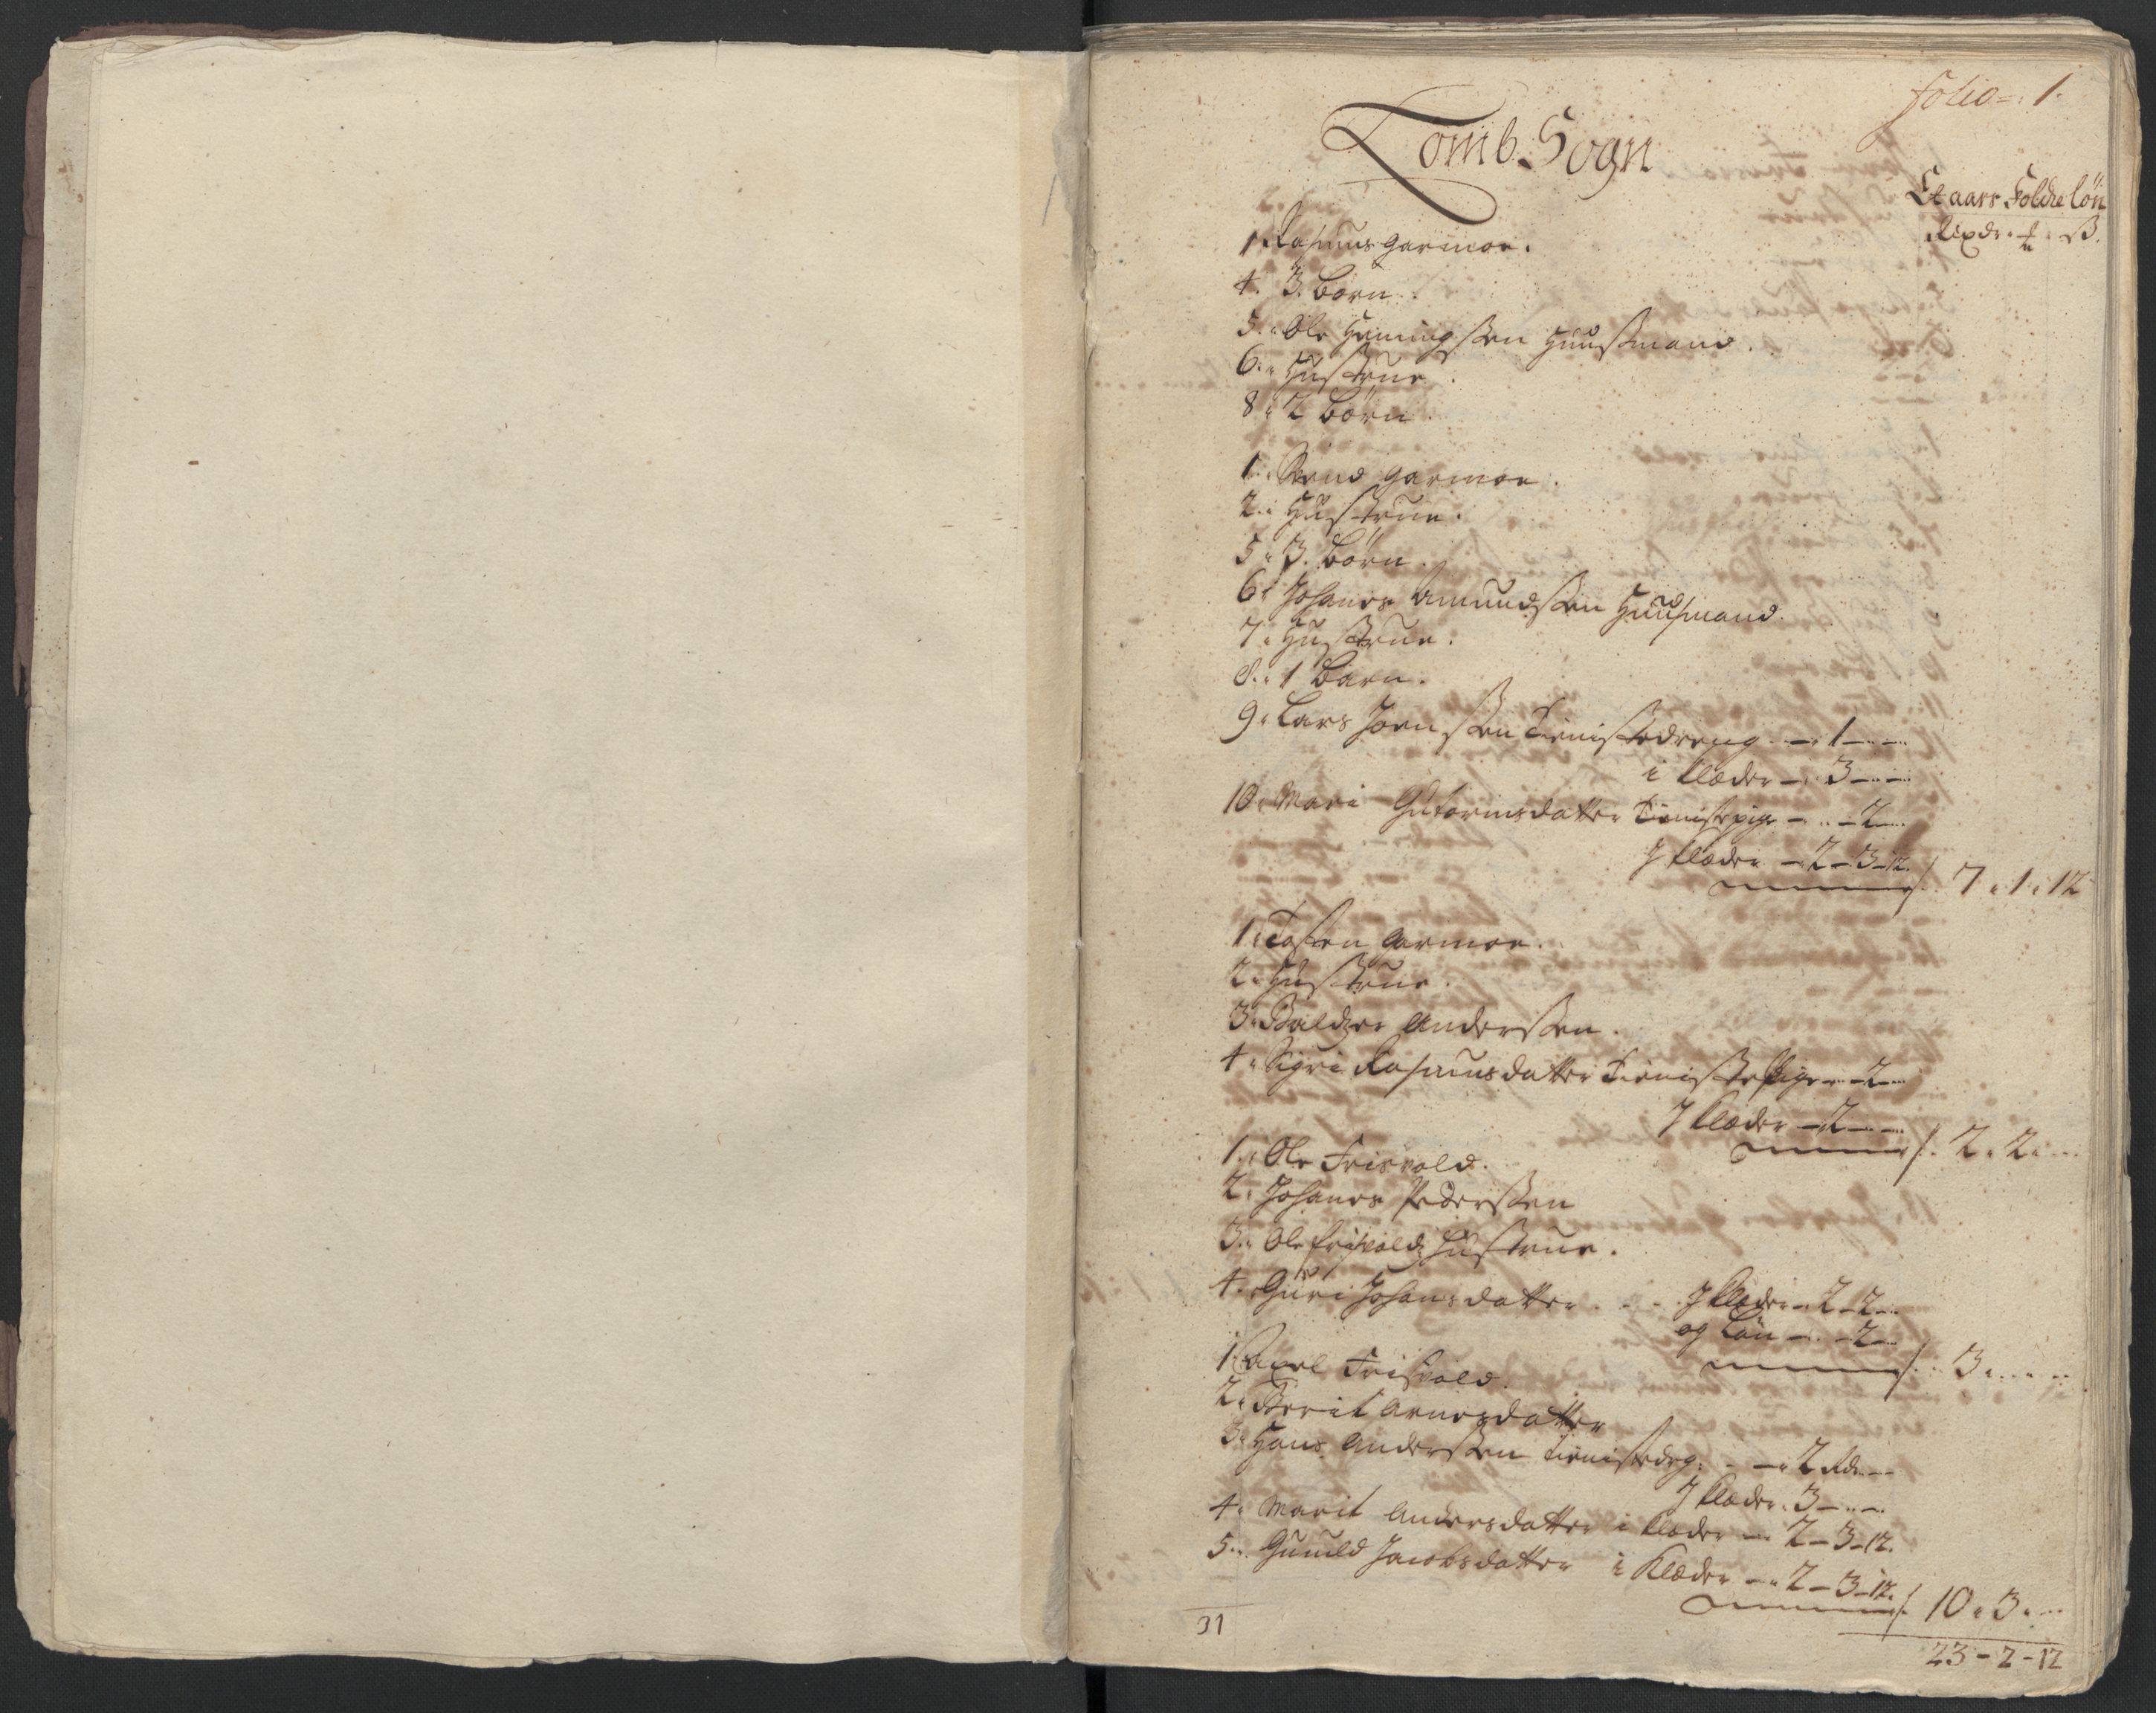 folio=. 1.
Lomb. Sogn
Et aars Folche løn
Rixdr. ℔. ß.
1 Rasmus Garmoe.
4. 3. Børn.
5. Ole Hemingssen Huusmand.
6. Hustrue.
8. 2 Børn
1. Svend Garmoe.
2. Hustrue.
5. 3. Børn.
6. Johanes Amundssen Huusmand.
7. Hustrue.
8. 1 Barn.
9. Lars Joenssen Tienistedreng. — 1 — —
i Klæder — 3 — —
10. Mari Gutormsdatter Tienistepige — .. — 2 —
J Klæder — 2 — 3 — 12. /. 7. 1. 12
1. Tosten Garmoe.
2. Hustrue.
3. Baldzer Anderssen.
4. Sigri Rasmusdatter Tieniste Pige — 2 —
J Klæder — 2 — — /. 2. 2. —
1. Ole Frisvold.
2. Johanes Pederssen
3. Ole Frisvolds Hustrue.
4. Guri Johansdatter . . . J Klæder — 2 — 2 —
og Løn — . — 2 — /. 3. — —
1. Axel Frisvold.
2. Berit Arnesdatter
3. Hans Anderssen Tienistedrg. — 2 Rdr. —
J Klæder. 3 — —
4. Marit Andersdatter i Klæder — 2 — 3 — 12.
5. Gunild Jacobsdatter i Klæder — 2 — 3 — 12. /. 10. 3. —
31
23 - 2 - 12